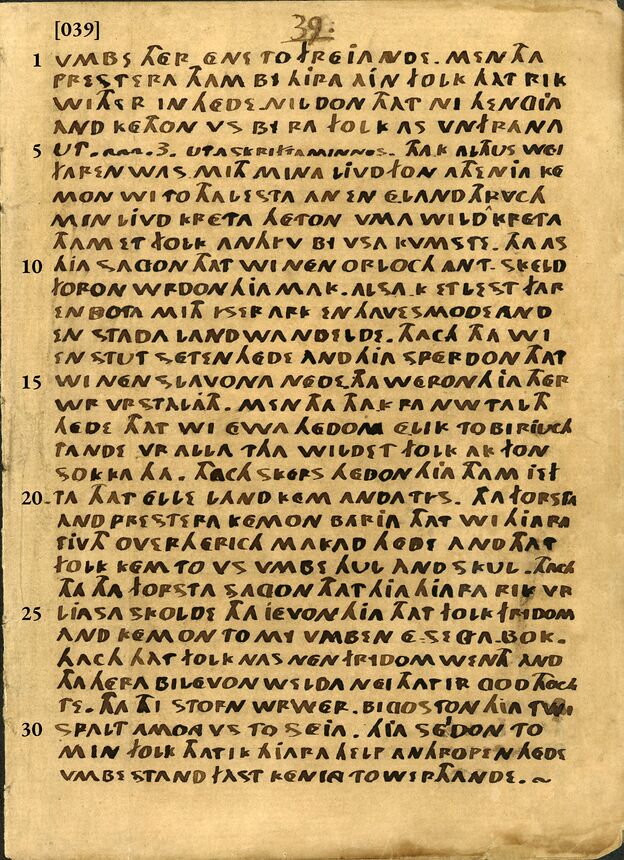 [039]
39:
1 VMBE THER ENE TO FREIANDE. MEN THA
PRESTERA THAM BI HIRA AIN FOLK HAT RIK
WITHER IN HEDE. NILDON THAT NI HENGIA
AND KETHON VS BI RA FOLK AS VNFRANA
5 UT. 3. UTASKRIFTAMINNOS. THAK ALTHUS WEI
FAREN WAS MITH MINA LIVD FON ATHENIA KE
MON WI TO THA LESTA AN EN ELAND THRVCH
MIN LIVD KRETA HETON VMA WILD KRETA
THAM ET FOLK ANHYV BI VSA KVMSTE. THA AS
10 HIA SAGON THAT WI NEN ORLOCH ANT SKELD
FORON WRDON HIA MAK. ALSA.K ET LEST FAR
EN BOTA MITH YSER ARK EN HAVESMODE AND
EN STADA LAND WANDELDE. THACH THA WI
EN STUT SETEN HEDE AND HIA SPERDON THAT
15 WI NEN SLAVONA NEDE. THA WERON HIA THER
WR VRSTALATH. MEN THA THAK RA NW TALTH
HEDE THAT WI EWA HEDON ELIK TO BIRIVCH
TANDE VR ALLA THA WILDET FOLK AK FON
SOKKA HA. THACH SKERS HEDON HIA THAM IEF
20 TA THAT ELLE LAND KEM ANDA TYS. THA FORSTA
AND PRESTERA KEMON BARIA THAT WI HIARA
TIVTH OVERHERICH MAKAD HEDE AND THAT
FOLK KEM TO VS VMBE HUL AND SKUL. THACH
THA THA FORSTA SAGON THAT HIA HIARA RIK VR
25 LIASA SKOLDE THA IEVON HIA THAT FOLK FRIDOM
AND KEMON TO MY VMB EN E. SEGA. BOK.
THACH THAT FOLK NAS NEN FRIDOM WENTH AND
THA HERA BILEVON WELDA NEI THAT IR GOD THOCH
TE. THA THI STORN WR WER. BIGOSTON HIA TWI
30 SPALT AMONG VS TO SEIA. HIA SEDON TO
MIN FOLK THAT IK HIARA HELP ANHROPEN HEDE
VMBE STANDFAST KENING TO WERTHANDE. ~